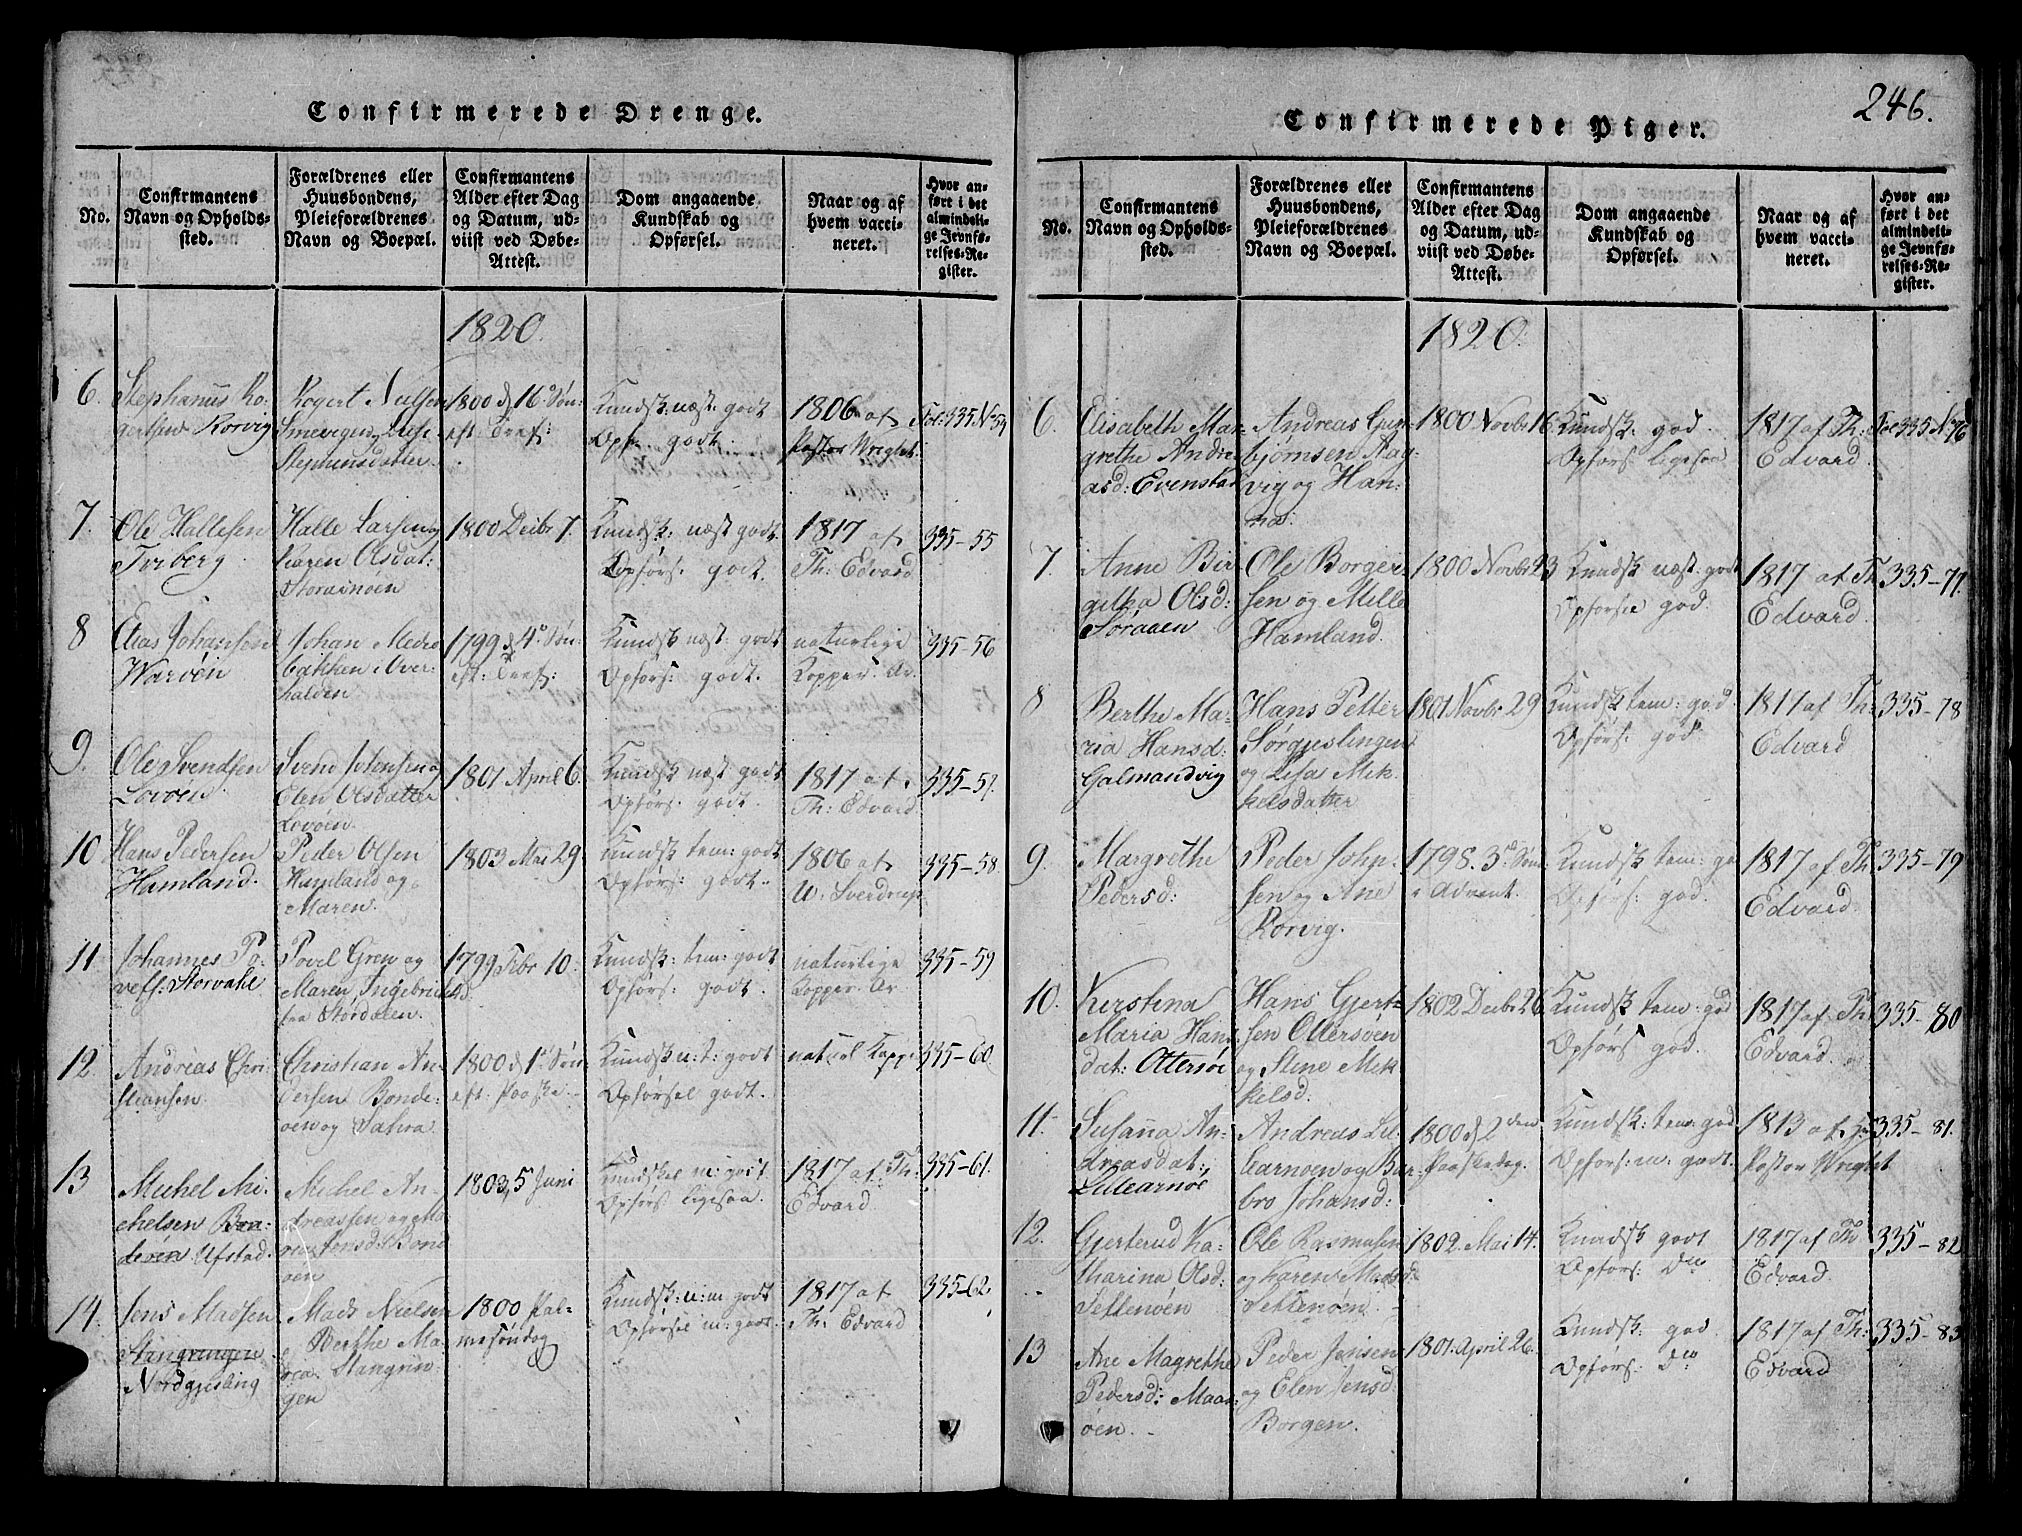 246.
Confirmerede Drenge.
No.
Confirmantens
Navn og Opholds-
sted.
Forældrenes eller
Huusbondens,
Pleieforældrenes
Navn og Boepæl.
Confirmantens
Alder efter Dag
og Datum, ud-
viist ved Døbe-
Attest.
Dom angaaende
Kundskab og
Opførsel.
Naar og af
hvem vacci-
neret.
Hvor an-
ført i det
almindeli-
ge Jevnfø-
relses-Re-
gister.
1820.
6.
Stephanus Ro-
gertsen Rorvig
Rogert Nielsen
Smevigen og Lise
Stephensdatter.
1800 d 16 Søn:
eft: Tref:
Kundsk: næst: godt
Opf: godt.
1806 af
Pastor Wright.
Fol: 335 No 54
7.
Ole Hallesen
Torberg
Halle Larsen og
Karen Olsdat:
Storasnöen
1800 Decbr 7.
Kundsk: næst godt
Opförs: godt.
1817 af
Th: Edvard
335-55
8
Elias Johansen
Warvöen
Johan Medro
bakken i Over-
halden
1799 d 4 Søn-
eft: Tref:
Kundsk næst: godt
Opförs: godt.
naturlige
Kopper. Ar.
335-56
9.
Ole Svendsen
Lovöen
Svend Johnsen og
Elen Olsdatter
Lovöen.
1801 April 6.
Kundsk næst godt
Opförs: godt.
1817 af
Th: Edvard
335-57.
10
Hans Pedersen
Hamland.
Peder Olsen
Hamland og
Maren.
1803 Mai 29.
Kundsk tem: godt
Opförs: godt.
1806 af
W. Sverdrup
335-58.
11
Johannes Po-
vels: Storvahl
Povel Grew og
Maren Ingebrichtsd
fra Stordalen.
1799 Febr 10.
Kundsk: tem: godt
Opförs: godt.
naturlige
Kopper. Ar.
335-59
12.
Andreas Chri-
stiansen
Christian An-
dersen Bonde-
öen og Sahra.
1800 d 1 Søn-
eft: Paaske.
Kundsk n: t: godt
Opförsel godt.
naturl Koppe
335-60
13
Michel Mi-
chelsen Bon-
deöen Ufstad.
Michel An-
dreassen og
öen
1803, 5 Juni
Kundskab m: godt
Opförs: ligesaa.
1817 af Th:
Edvard
335-61.
14.
Jens Madsen
Stangringen
Nordgjesling
Mads Nielsen
Berthe Ma-
ria Stangrin
gen
1800 Pal-
mesöndag
Kundsk: n: m godt
Opförsel m: godt.
1817 af
Th. Edvard
335-62.
Confirmerede Piger.
No.
Confirmantens
Navn og Opholds-
sted.
Forældrenes eller
Huusbondens,
Pleieforældrenes
Navn og Boepæl.
Confirmantens
Alder efter Dag
og Datum, ud-
viist ved Døbe-
Attest.
Dom angaaende
Kundskab og
Opførsel.
Naar og af
hvem vacci-
neret.
Hvor an-
ført i det
almindeli-
ge Jevnfø-
relses-Re-
gister.
1820.
6.
Elisabeth Mar-
grethe Andre-
asd: Evenstad
Andreas Gun-
björnsen Aag-
vig og Han-
na.
1800 Novbr 16.
Kundsk: god.
Opförs: ligesaa
1817 af Th:
Edvard
Fol 335 No 76
7.
Anne Bir-
githa Olsd:
Soraaen
Ole Borger-
sen og Mille
Hamland.
1800 Novbr 23
Kundsk næst: godt
Opförsel god.
1817 af Th
Edvard.
335-77.
8
Berthe Ma-
ria Hansd:
Galmandvig
Hans Petter
Sørgjeslingen
og Lisa Mik-
kelsdatter
1801 Novbr 29
Kundsk tem: god
Opförs: god.
1817 af Th:
Edvard
335-78
9.
Margrethe
Pedersd:
Peder John-
sen og Ane
Rorvig.
1798. 3 Søn
i Advent.
Kundsk tem: go
Opförs: god.
1817 af Th:
Edvard.
335-79
10.
Kirstina
Maria Hans
dat: Otterøe
Hans Gjert-
sen Ottersöen
og Stine Mik
kelsd.
1802 Decbr 26.
Kundsk tem: god
Opförs god.
1817 af Th:
Edvard.
335-80
11.
Susanna An-
dreasdat:
Lillearnöe
Andreas Lil
learnöen og Bar-
bro Johansd:
1800 d 2den
Paaskedag.
Kundsk: tem: god
Opförs: m: godt.
1813 af Hr
Pastor Wright
335-81.
12.
Gjertrud Ka-
tharina Olsd:
Settenöen
Ole Rasmusen
og Karen Madsd
Settenöen.
1802. Mai 14.
Kundsk godt
Opförs: Do
1817 af Th
Edvard.
335-82
13
Ane Magrethe
Pedersd: Maar-
öen.
Peder Jensen
og Elen Jensd
Borgen.
1801. April 26.
Kundsk: god
Opförs: Do
1817 af Th:
Edvard
335-83